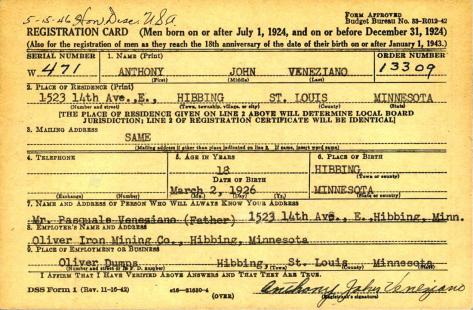 5-15-46 Hon Disc. USA
FORM APPROVED
Budget Bureau No. 33-R012-42
REGISTRATION CARD (Men born on or after July 1, 1924, and on or before December 31, 1924)
(Also for the registration of men as they reach the 18th anniversary of the date of their birth on or after January 1, 1943.)
SERIAL NUMBER 1. NAME (Print) ORDER NUMBER
W 471 ANTHONY JOHN VENEZIANO 13309
(First) (Middle) (Last)
2. PLACE OF RESIDENCE (Print)
1523 14th Ave.,E., HIBBING ST. LOUIS MINNESOTA
(Number and street) (Town, township, village, or city) (County) (State)
[THE PLACE OF RESIDENCE GIVEN ON LINE 2 ABOVE WILL DETERMINE LOCAL BOARD
JURISDICTION; LINE 2 OF REGISTRATION CERTIFICATE WILL BE IDENTICAL]
3. MAILING ADDRESS
SAME
[Mailing address if other than place indicated on line 2. If same, insert word same]
4. TELEPHONE 5. AGE IN YEARS 6. PLACE OF BIRTH
18 HIBBING
DATE OF BIRTH (Town or county)
March 2, 1926 MINNESOTA
(Exchange) (Number) (Mo.) (Day) (Yr.) (State or country)
7. NAME AND ADDRESS OF PERSON WHO WILL ALWAYS KNOW YOUR ADDRESS
Mr. Pasquale Veneziano (Father) 1523 14th Ave., E.Hibbing, Minn.
8. EMPLOYER'S NAME AND ADDRESS
Oliver Iron Mining Co., Hibbing, Minnesota
9. PLACE OF EMPLOYMENT OR BUSINESS
Oliver Dumps Hibbing, St. Louis Minnesota
(Number and street or R. F. D. number) (Town) (County) (State)
I AFFIRM THAT I HAVE VERIFIED ABOVE ANSWERS AND THAT THEY ARE TRUE.
DSS Form 1 (Rev. 11-16-42) (OVER) Anthony John Veneziano
(Registrant's signature)